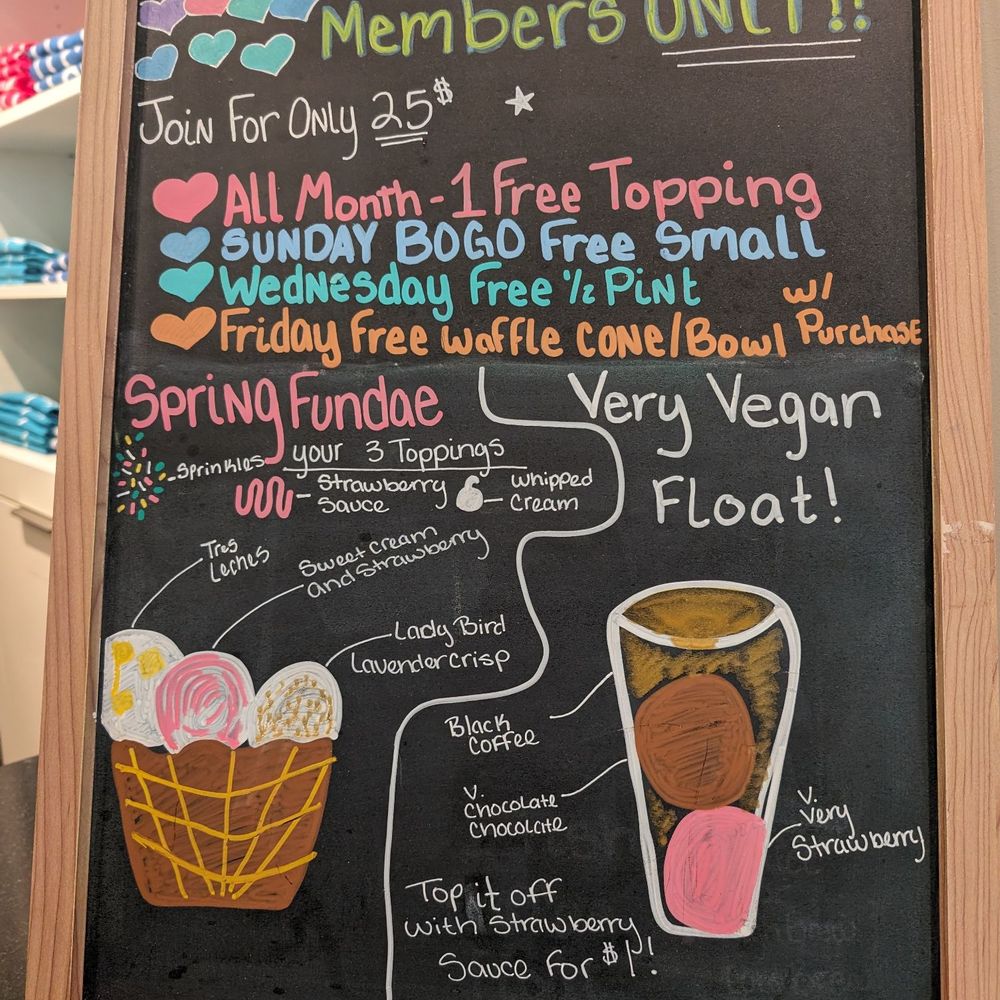 Members ONLY!!
Join For Only 25$
All Month - 1 Free Topping
SUNDAY BOGO Free Small
Wednesday Free 1/2 Pint
Friday Free waffle cone/Bowl w/ Purchase
Spring Fundae
your 3 Toppings
Sprinkles
Strawberry
Sauce
whipped
Cream
Tres
Leches
Sweet cream
and Strawberry
Lady Bird
Lavender crisp
Very Vegan
Float!
Black
Coffee
V.
Chocolate
Chocolate
V.
Very
Strawberry
Top it off
with Strawberry
Sauce For $1!